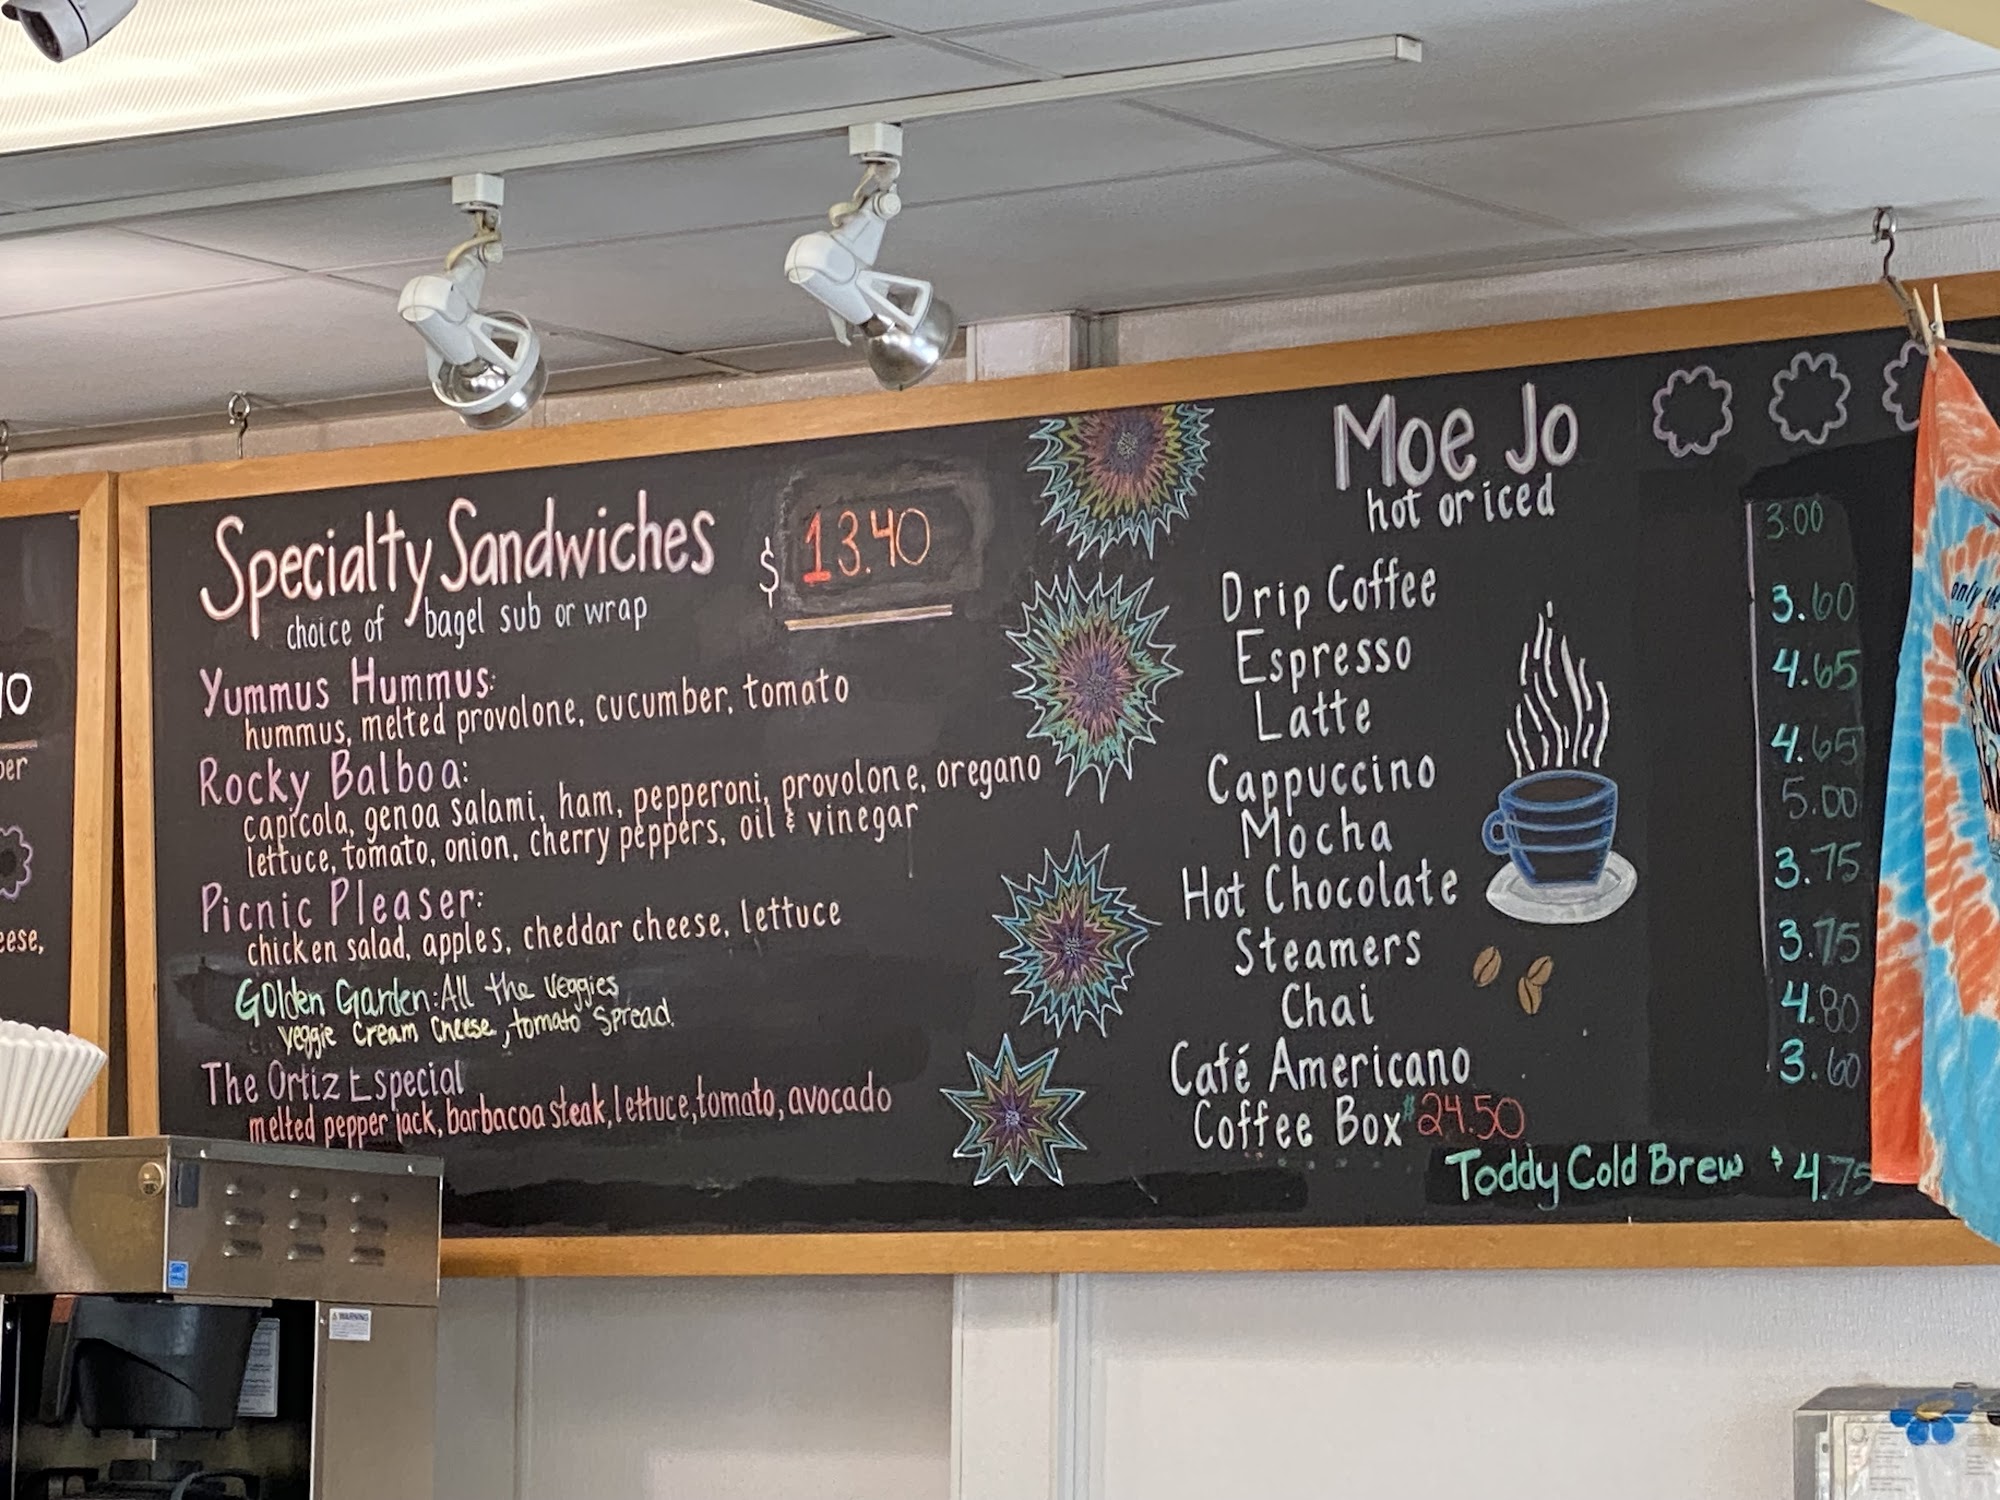 10
per
eese,
Specialty Sandwiches $ 13.40
choice of bagel sub or wrap
Yummus Hummus:
hummus, melted provolone, cucumber, tomato
Rocky Balboa:
capicola, genoa salami, ham, pepperoni, provolone, oregano
lettuce, tomato, onion, cherry peppers, oil & vinegar
Picnic Pleaser:
chicken salad, apples, cheddar cheese, lettuce
Golden Garden: All the veggies
veggie cream cheese, tomato spread.
The Ortiz Especial
melted pepper jack, barbacoa steak, lettuce, tomato, avocado
Moe Jo
hot or iced
Drip Coffee 3.00
Espresso 3.60
Latte 4.65
Cappuccino 4.65
Mocha 5.00
Hot Chocolate 3.75
Steamers 3.75
Chai 4.80
Café Americano 3.60
Coffee Box $24.50
Toddy Cold Brew $4.75
only the
WARNING